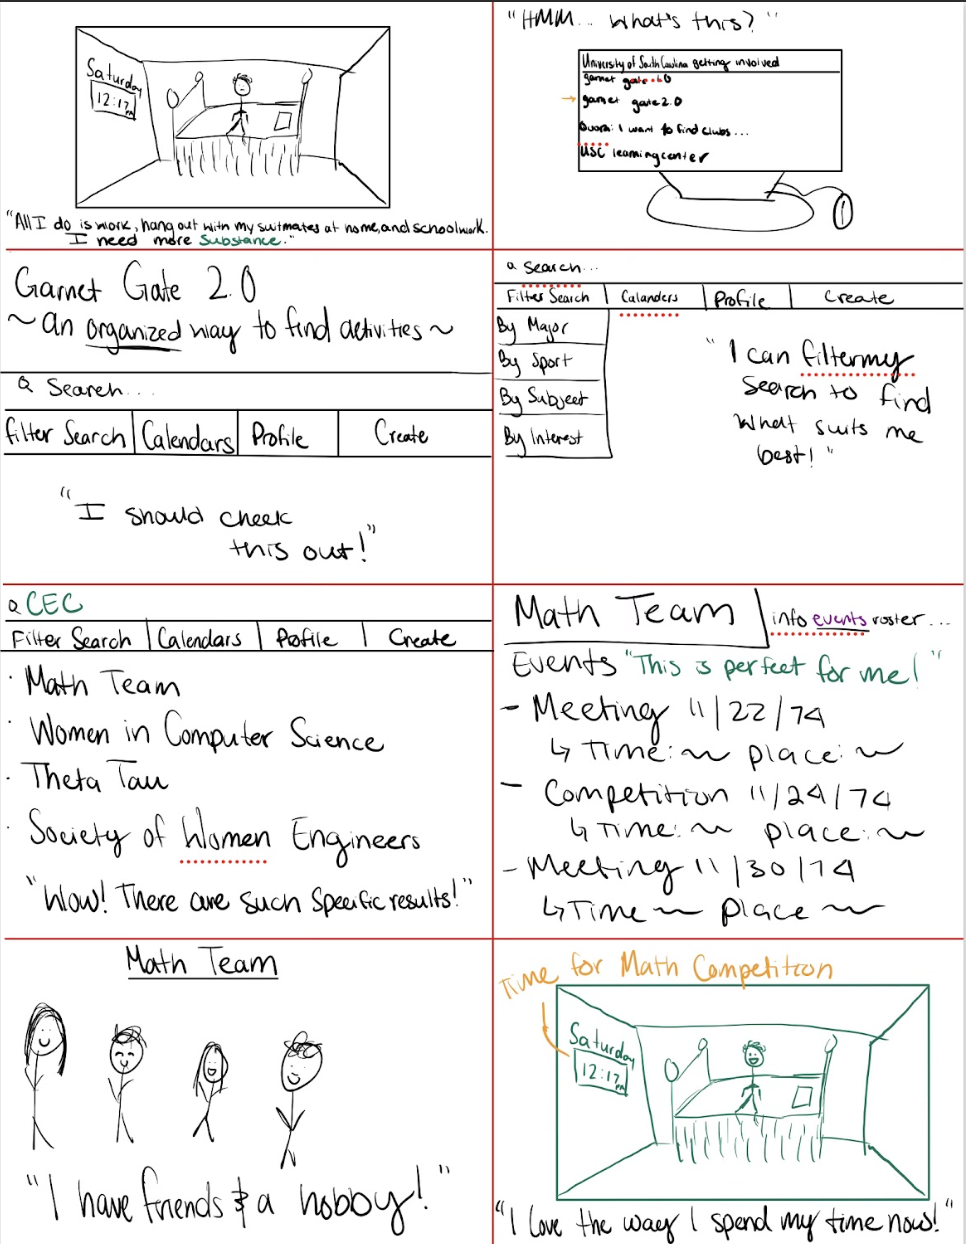 Saturday
12:17
PM
"All I do is work, hang out with my suitmates at home, and schoolwork.
I need more substance."
"HMM... What's this?"
University of South Carolina getting involved
garnet gate 1.0
→ garnet gate 2.0
Quora: I want to find clubs...
USC learning center
Garnet Gate 2.0
~ an organized way to find activities ~
Search...
Filter Search Calendars Profile Create
"I should check
this out!"
Search...
Filter Search Calanders Profile Create
By Major
By Sport
By Subject
By Interest
"I can filter my
search to find
what suits me
best!"
CEC
Filter Search Calendars Profile Create
· Math Team
· Women in Computer Science
· Theta Tau
· Society of Women Engineers
"Wow! There are such specific results!"
Math Team info events roster...
Events "This is perfect for me!"
- Meeting 11/22/74
↳ Time: ~ place: ~
- Competition 11/24/74
↳ Time: ~ place: ~
- Meeting 11/30/74
↳ Time ~ place ~
Math Team
"I have friends & a hobby!"
Time for Math Competition
Saturday
12:17
PM
"I love the way I spend my time now!"